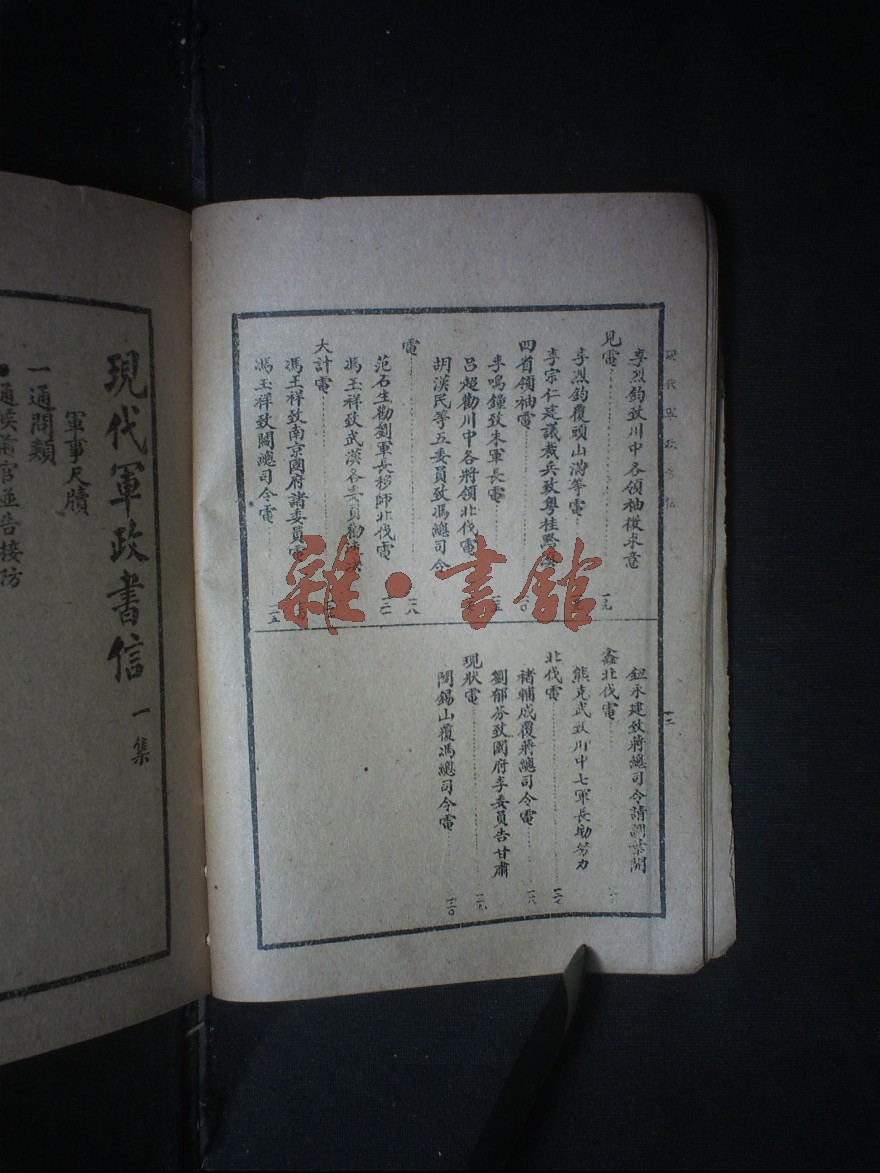 現代軍政書信
李烈鈞致川中各領袖徵求意
見電
李烈鈞覆頭山滿等電
李宗仁建議裁兵致粵桂黔
四省領袖電
李鳴鐘致朱軍長電
呂超勸川中各將領北伐電
胡漢民等五委員致馮總司令
電
范石生勸劉軍長移師北伐電
馮玉祥致武漢各委員勸
大計電
馮玉祥致南京國府諸委員電
馮玉祥致閻總司令電
鈕永建致蔣總司令請調葉開
鑫北伐電
熊克武致川中七軍長勖努力
北伐電
褚輔成覆蔣總司令電
劉郁芬致國府李委員告甘肅
現狀電
閻錫山覆馮總司令電
現代軍政書信 一集
軍事尺牘
一通問類
通候前官並告接防
雜·書館